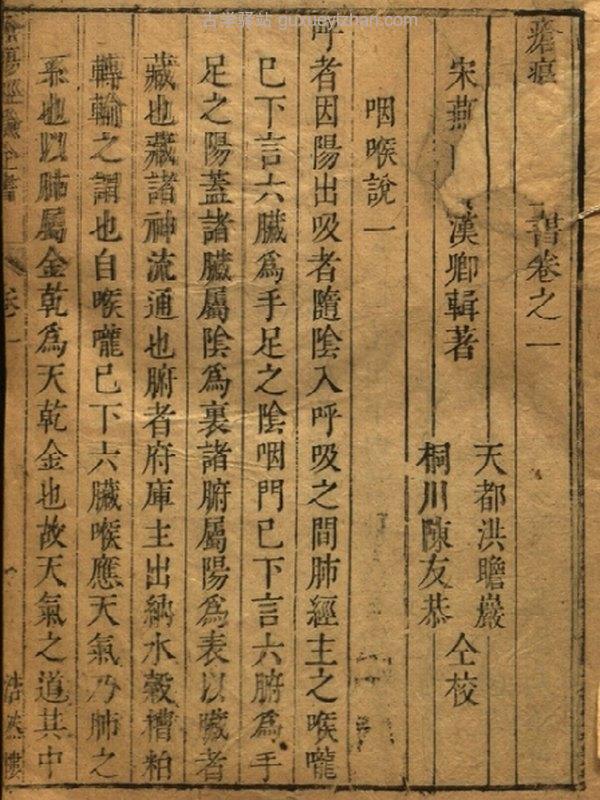 古学驿站 guxueyizhan.com
瘡瘍 書卷之一
宋燕 漢卿輯著
天都洪瞻巖
桐川陳友恭
仝校
咽喉說一
呼者因陽出吸者隨陰入呼吸之間肺經主之喉嚨
已下言六臟爲手足之陰咽門已下言六腑爲手
足之陽蓋諸臟屬陰爲裏諸腑屬陽爲表以臟者
藏也藏諸神流通也腑者府庫主出納水穀糟粕
轉輸之謂也自喉嚨已下六臟喉應天氣乃肺之
系也以肺屬金乾爲天乾金也故天氣之道其中
瘡瘍經驗全書
卷一
浩然樓